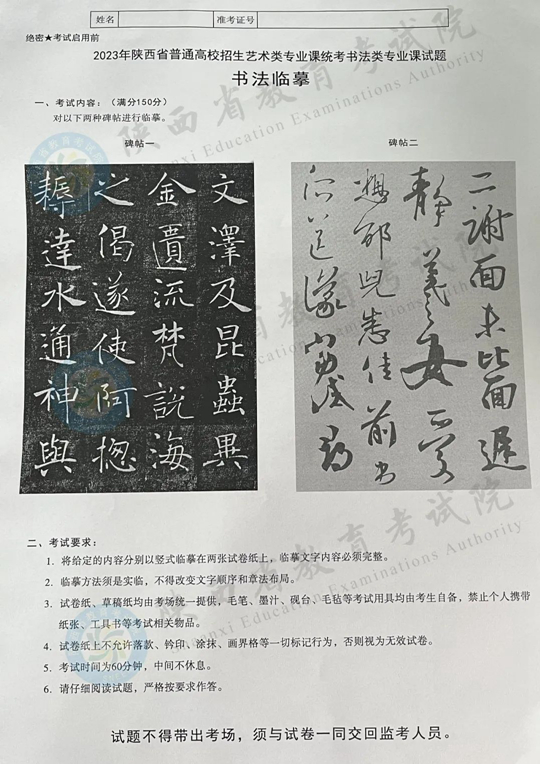 姓名 准考证号
绝密★考试启用前
2023年陕西省普通高校招生艺术类专业课统考书法类专业课试题
书法临摹
一、考试内容：（满分150分）
对以下两种碑帖进行临摹。
碑帖一
文澤及昆蟲異
金遺流梵說海
之偈遂使阿揔
耨達水通神與
碑帖二
二謝面未比面遲
靜羲之女愛
想邰兒悉佳前
所送議當試尋
二、考试要求：
1. 将给定的内容分别以竖式临摹在两张试卷纸上，临摹文字内容必须完整。
2. 临摹方法须是实临，不得改变文字顺序和章法布局。
3. 试卷纸、草稿纸均由考场统一提供，毛笔、墨汁、砚台、毛毡等考试用具均由考生自备，禁止个人携带
纸张、工具书等考试相关物品。
4. 试卷纸上不允许落款、钤印、涂抹、画界格等一切标记行为，否则视为无效试卷。
5. 考试时间为60分钟，中间不休息。
6. 请仔细阅读试题，严格按要求作答。
试题不得带出考场，须与试卷一同交回监考人员。
陕西省教育考试院
Shaanxi Education Examinations Authority